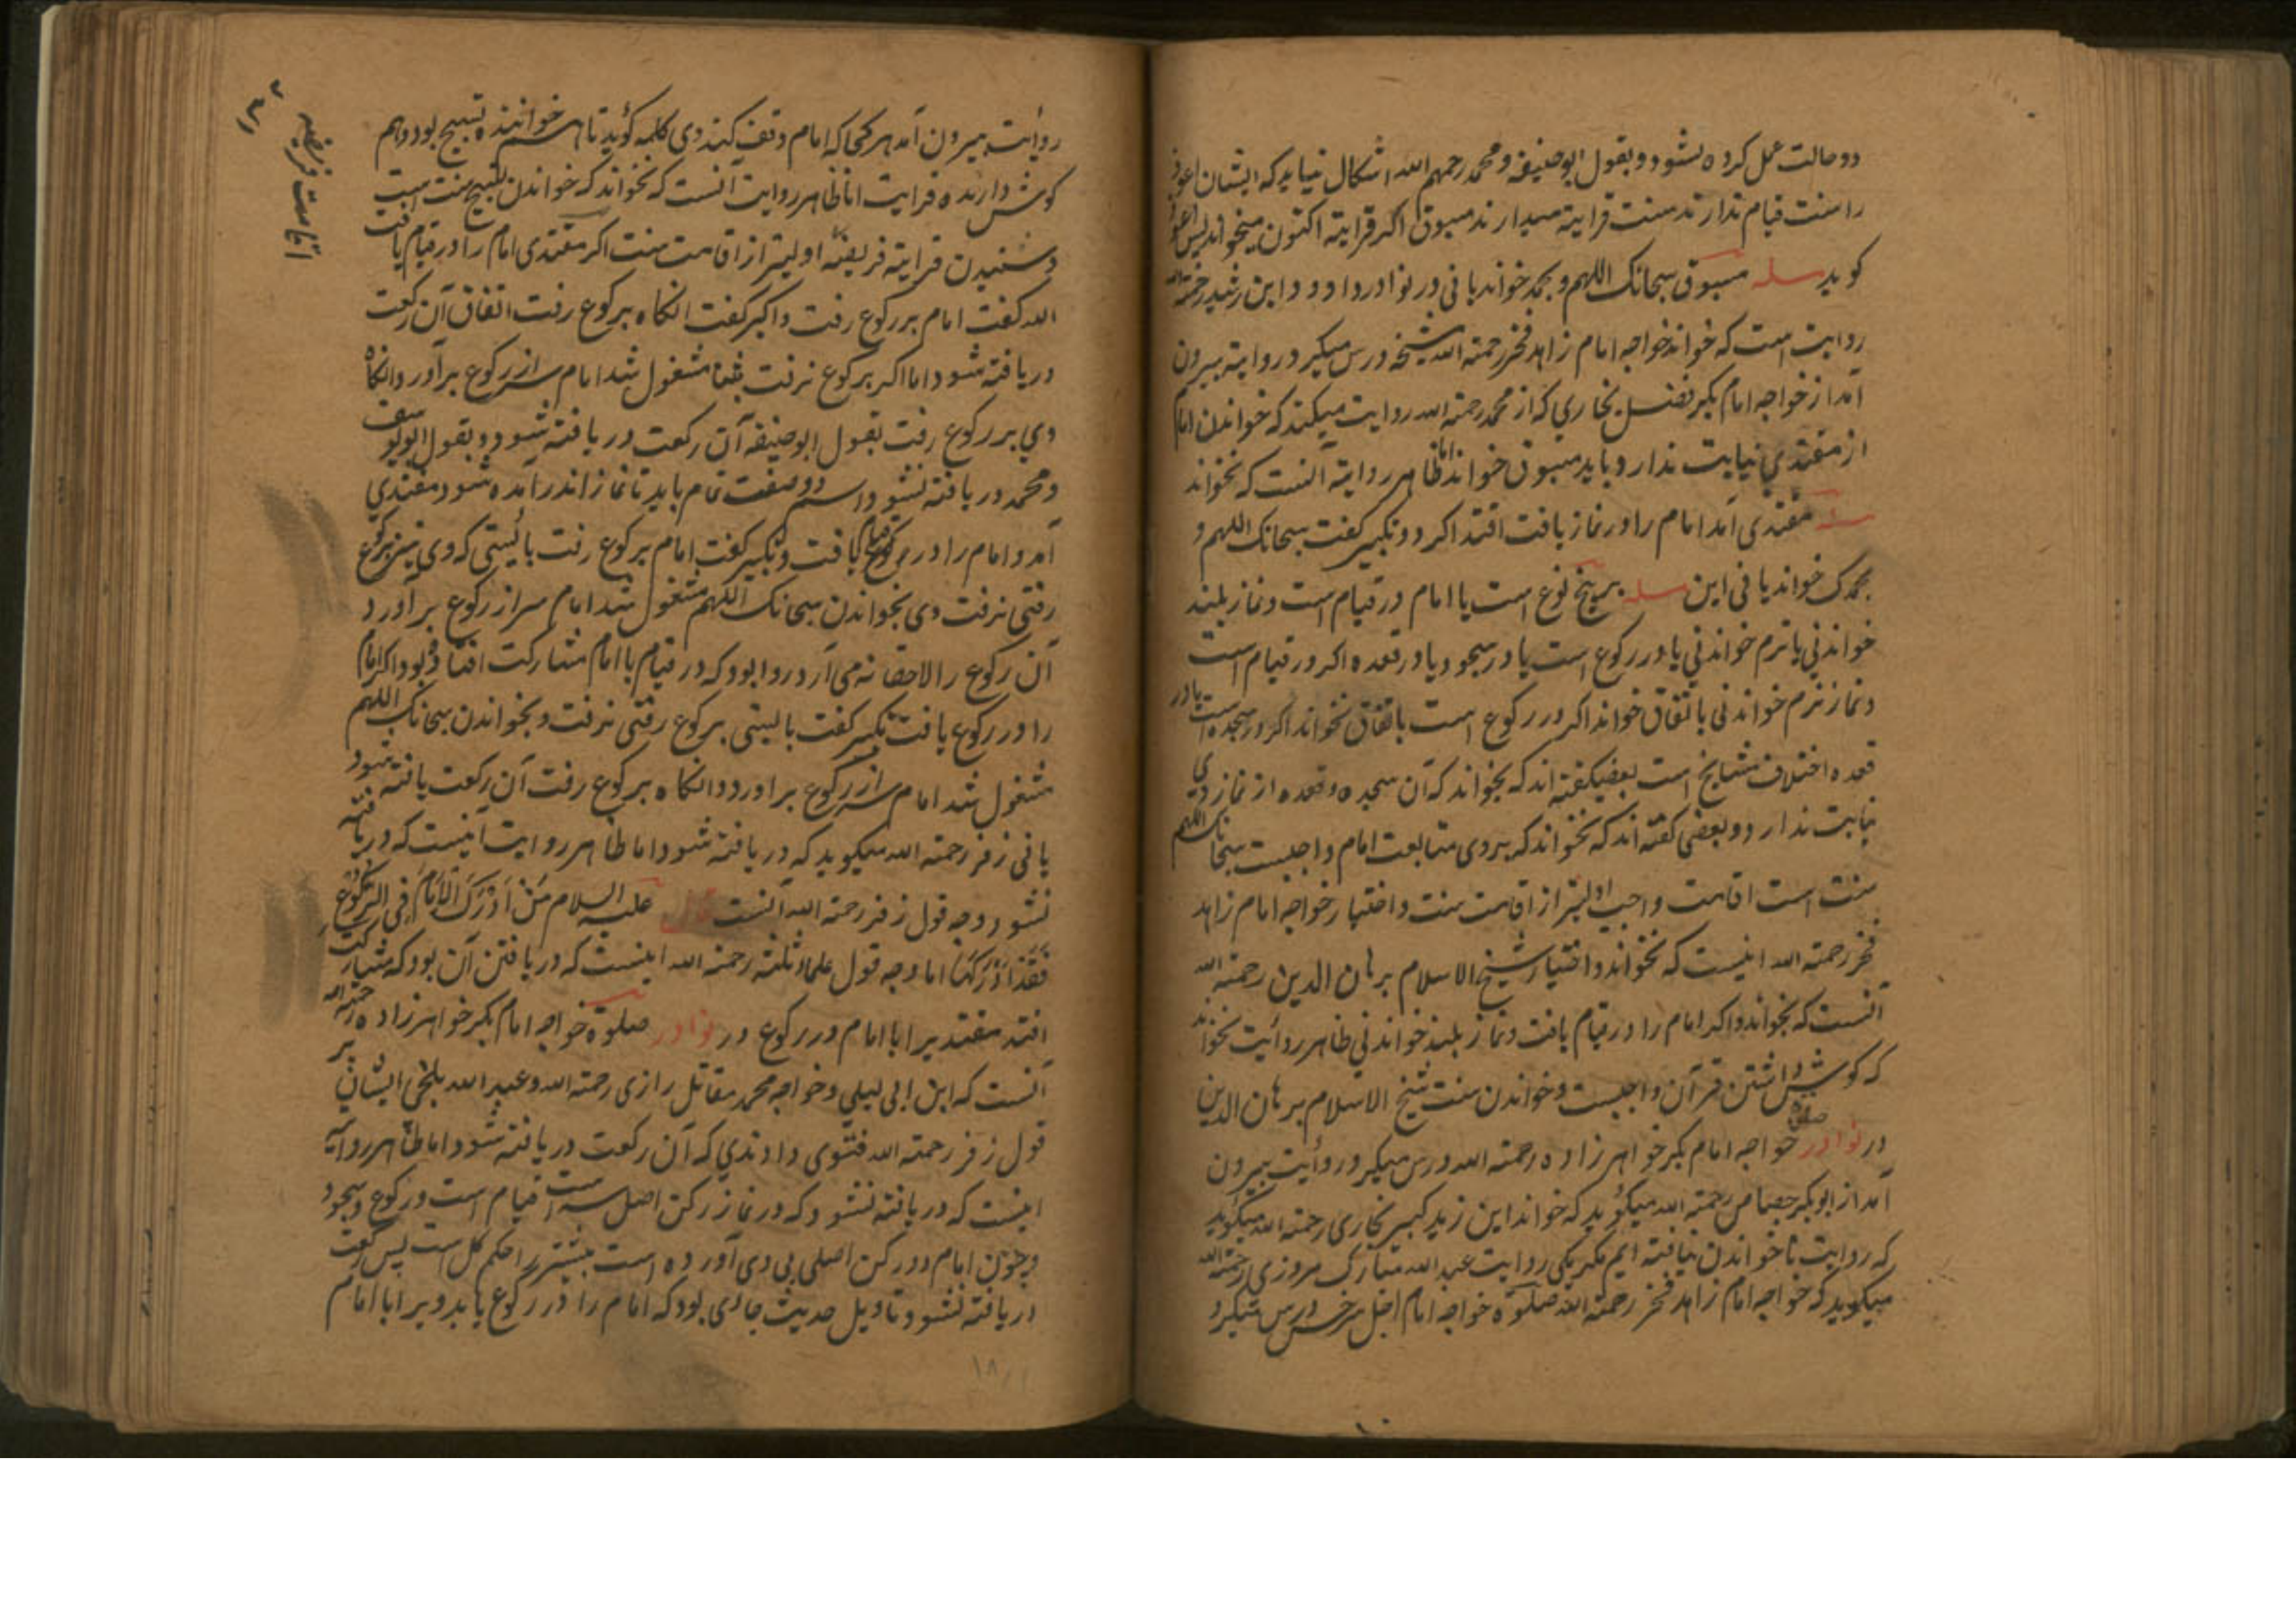 دو حالت عمل کرده نشود و بقول ابو حنیفه و محمد رحمهم الله اشکال نیاید که ایشان اعوذ
را سنت قیام ندارند سنت قرایة میدارند مسبوق اکر قرایة اکنون میخواند پس اعوذ
کوید مسله مسبوق سبحانک اللهم و بحمد خواند یا نی در نوادر داود و ابن رشید رحمة الله
روایت است که خواند خواجه امام زاهد فخر رحمة الله شیخه درس میکیرد روایة بیرون
آمد از خواجه امام بکر فضل بخاری که از محمد رحمة الله روایت میکند که خواندن امام
از مقتدی نیابت ندارد باید مسبوق خواند اما ظاهر روایة آنست که نخواند
مسله مقتدی آمد امام را در نماز یافت اقتدا کرد و تکبیر کفت سبحانک اللهم و
بحمدک خواند یا نی این مسله بر پنج نوع است یا امام در قیام است و نماز بلند
خواندنی یا نرم خواندنی یا در رکوع است یا در سجود و یا در قعده اکر در قیام است
و نماز نرم خواندنی باتفاق خواند اکر در رکوع است باتفاق نخواند اکر در سجده است یا در
قعده اختلاف مشایخ است بعضی کفته اند که بخواند که آن سجده و قعده از نماز وی
نیابت ندارد و بعضی کفته اند که نخواند که بروی متابعت امام واجبست سبحانک اللهم
سنت است اقامت واجب اولیتر از اقامت سنت و اختیار خواجه امام زاهد
فخر رحمة الله اینست که نخواند و اختیار شیخ الاسلام برهان الدین رحمة الله
آنست که بخواند و اکر امام را در قیام یافت و نماز بلند خواندنی ظاهر روایت نخواند
که کوش داشتن قرآن واجبست و خواندن سنت شیخ الاسلام برهان الدین
در نوادر صلوة خواجه امام بکر خواهرزاده رحمة الله درس میکیرد روایت بیرون
آمد از ابو بکر جصاص رحمة الله میکوید که خواند این زید کبیر بخاری رحمة الله میکوید
که روایت ناخواندن نیافته ایم مکر یکی روایت عبد الله مبارک مروزی رحمة الله
میکوید که خواجه امام زاهد فخر رحمة الله صلوة خواجه امام اجل سرخسی درس میکیرد
اقامت فریضه
روایت بیرون آمد هر کجا که امام وقف کند وی کلمه کوید تا هم خواننده تسبیح بود و هم
کوش دارنده قرایت اما ظاهر روایت آنست که نخواند که خواندن تسبیح سنت است
و شنیدن قرایة فریضه اولیتر از اقامت سنت اکر مقتدی امام را در قیام یافت
الله کفت امام بر رکوع رفت و اکبر کفت انکاه برکوع رفت اتفاق آن رکعت
دریافته شود اما اکر برکوع نرفت بثنا مشغول شد امام سر از رکوع برآورد و انکاه
وی بر رکوع رفت بقول ابو حنیفه آن رکعت دریافته شود و بقول ابو یوسف
و محمد دریافته نشود و اسم و صفت تمام باید تا نماز اندر آمده شود مقتدی
آمد و امام را در قیام یافت و تکبیر کفت امام برکوع رفت بایستی که وی نیز برکوع
رفتی نرفت وی بخواندن سبحانک اللهم مشغول شد امام سر از رکوع برآورد
آن رکوع را لاحقانه می آرد روا بود که در قیام با امام مشارکت افتاده بود و اکر امام
را در رکوع یافت تکبیر کفت بایستی برکوع رفتی نرفت و بخواندن سبحانک اللهم
مشغول شد امام سر از رکوع براورد و انکاه برکوع رفت آن رکعت یافته شود
یا نی زفر رحمة الله میکوید که دریافته شود اما ظاهر روایت آنیست که دریافته
نشود و وجه قول زفر رحمة الله آنست قال علیه السلام مَنْ اَدْرَکَ الْاِمَامَ فِی الرُّکُوْعِ
فَقَدْ اَدْرَکَهَا اما وجه قول علماء ثلثه رحمة الله اینست که دریافتن آن بود که مشارکت
افتد مقتدیرا با امام در رکوع در نوادر صلوة خواجه امام بکر خواهرزاده رحمة الله
آنست که ابن ابی لیلی و خواجه محمد مقاتل رازی رحمة الله و عبد الله بلخی ایشان بر
قول زفر رحمة الله فتوی دادندی که آن رکعت دریافته شود اما ظاهر روایة
اینست که دریافته نشود که در نماز رکن اصل سه است قیام است و رکوع و سجود
و چون امام دو رکن اصلی بی وی آورده است بیشتر را حکم کل است پس رکعت
دریافته نشود و تاویل حدیث جائی بود که امام را در رکوع یابد و برابا امام